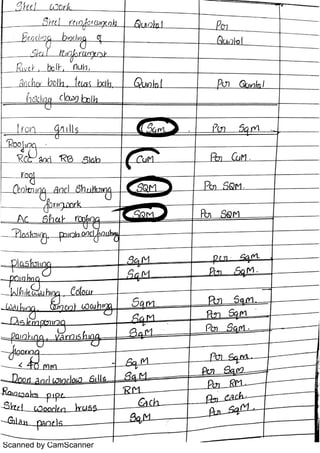 Steel work
Steel reinforcement Quintal Per
Bending, binding & Quintal
Steel reinforcement
Rivet, bolt, nuts, Quintal Per Quintal
anchor bolts, lewis bolts,
holding down bolts
Iron grills Sqm Per Sqm
Roofing
RCC and RB Slab CuM Per CuM.
roof
Centering And Shuttering SQM Per SQM.
formwork
Ac Sheet roofing SQM Per SQM
Plastering, points and finishing
plastering SqM per SqM.
pointing SqM Per SqM.
White washing, Colour
washing, Cement washing Sqm. Per Sqm.
Distempering SqM Per SqM
painting, varnishing SqM Per SqM.
flooring
< 40 mm SqM Per SqM.
Door and window Sills SqM Per Sqm
Rainwater pipe RM Per RM.
Steel wooden truss Each Per each.
Glass panels SqM. Per SqM.
Scanned by CamScanner